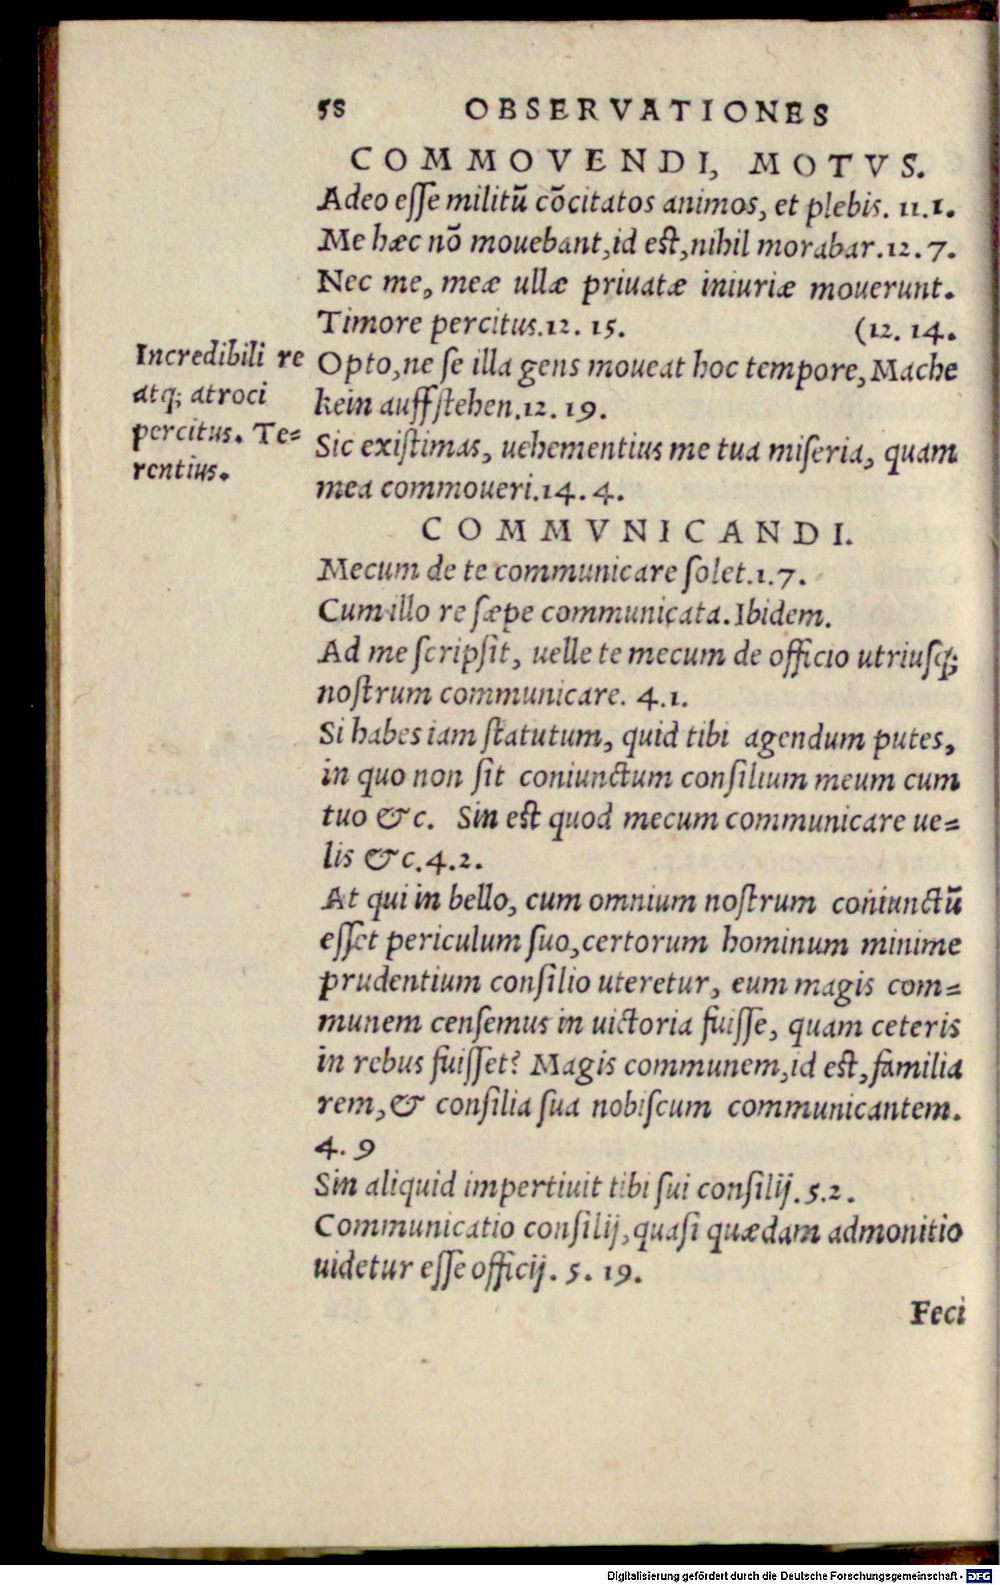 58 OBSERVATIONES
COMMOVENDI, MOTVS.
Adeo eſſe militũ cōcitatos animos, et plebis. 11.1.
Me hæc nō mouebant, id est, nihil morabar. 12. 7.
Nec me, meæ ullæ priuatæ iniuriæ mouerunt.
Timore percitus. 12. 15. (12. 14.
Incredibili re
atq; atroci
percitus. Te=
rentius.
Opto, ne ſe illa gens moueat hoc tempore, Mache
kein auffſtehen. 12. 19.
Sic exiſtimas, uehementius me tua miſeria, quam
mea commoueri. 14. 4.
COMMVNICANDI.
Mecum de te communicare ſolet. 1. 7.
Cum illo re ſæpe communicata. Ibidem.
Ad me ſcripſit, uelle te mecum de officio utriuſq;
noſtrum communicare. 4.1.
Si habes iam ſtatutum, quid tibi agendum putes,
in quo non ſit coniunctum conſilium meum cum
tuo &c. Sin est quod mecum communicare ue=
lis &c. 4.2.
At qui in bello, cum omnium noſtrum coniunctũ
eſſet periculum ſuo, certorum hominum minime
prudentium conſilio uteretur, eum magis com=
munem cenſemus in uictoria fuiſſe, quam ceteris
in rebus fuiſſet? Magis communem, id est, familia
rem, & conſilia ſua nobiſcum communicantem.
4. 9
Sin aliquid impertiuit tibi ſui conſilij. 5.2.
Communicatio conſilij, quaſi quædam admonitio
uidetur eſſe officij. 5. 19.
Feci
Digitalisierung gefördert durch die Deutsche Forschungsgemeinschaft - DFG